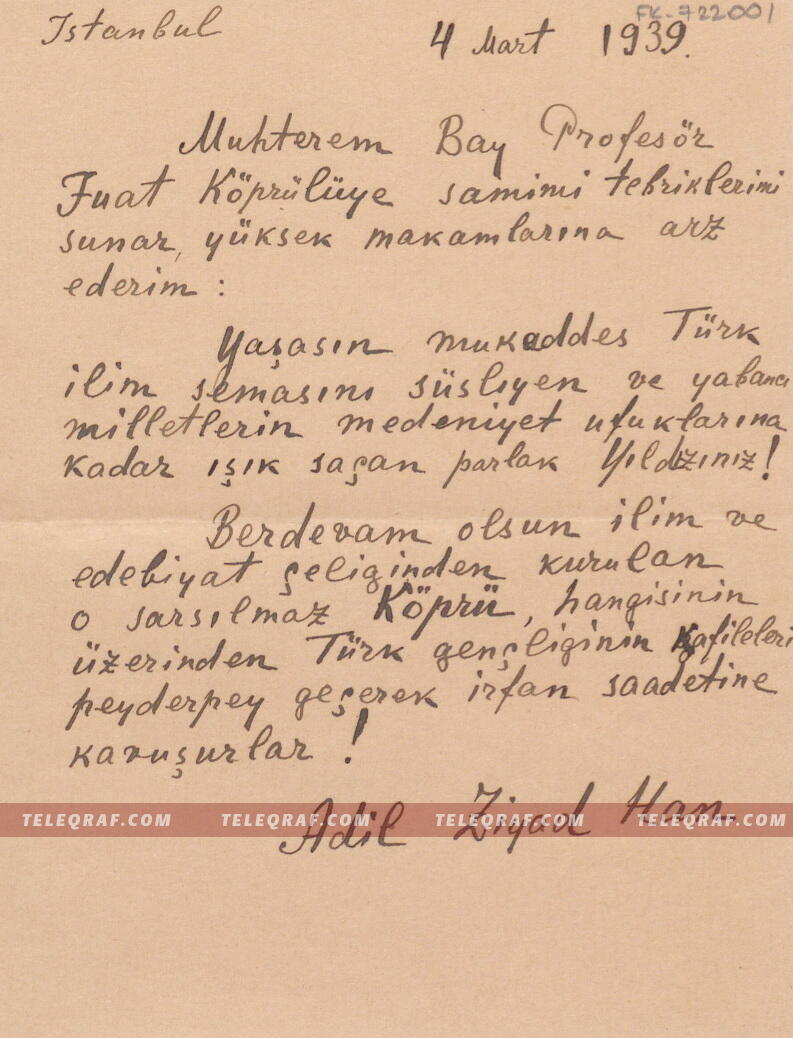 FK-722001
Istanbul 4 Mart 1939.
Muhterem Bay Profesör
Fuat Köprülüye samimi tebriklerimi
sunar, yüksek makamlarına arz
ederim :
Yaşasın mukaddes Türk
ilim semasını süslıyen ve yabancı
milletlerin medeniyet ufuklarına
kadar ışık saçan parlak Yıldızınız!
Berdevam olsun ilim ve
edebiyat çeliginden kurulan
o sarsılmaz Köprü, hangisinin
üzerinden Türk gençliginin kafileleri
peyderpey geçerek irfan saadetine
kavuşurlar !
TELEQRAF.COM TELEQRAF.COM TELEQRAF.COM TELEQRAF.COM
Adil Ziyad Han.